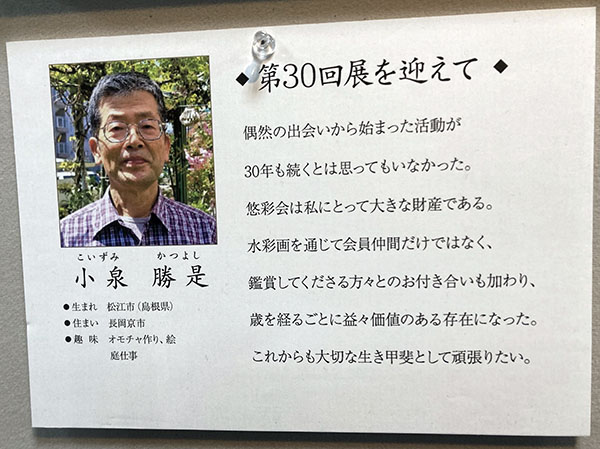 ◆ 第30回展を迎えて ◆
偶然の出会いから始まった活動が
30年も続くとは思ってもいなかった。
悠彩会は私にとって大きな財産である。
水彩画を通じて会員仲間だけではなく、
鑑賞してくださる方々とのお付き合いも加わり、
歳を経るごとに益々価値のある存在になった。
これからも大切な生き甲斐として頑張りたい。
こいずみ かつよし
小泉 勝是
●生まれ 松江市(島根県)
●住まい 長岡京市
●趣味 オモチャ作り、絵
庭仕事